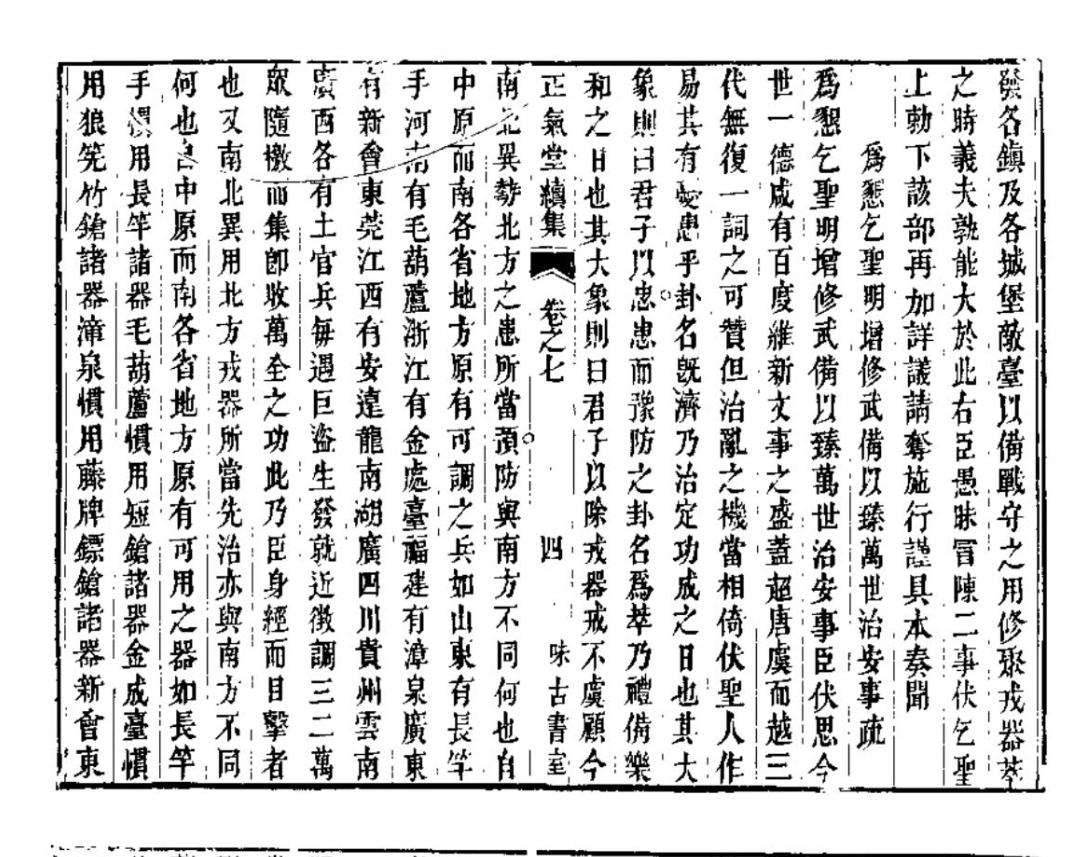 發各鎮及各城堡敵臺以備戰守之用修聚戎器萃
之時義夫孰能大於此右臣愚昧冒陳二事伏乞聖
上勅下該部再加詳議請奪施行謹具本奏聞
爲懇乞聖明增修武備以臻萬世治安事疏
爲懇乞聖明增修武備以臻萬世治安事臣伏思今
世一德咸有百度維新文事之盛蓋超唐虞而越三
代無復一詞之可贊但治亂之機當相倚伏聖人作
易其有憂患乎卦名旣濟乃治定功成之日也其大
象則曰君子以思患而豫防之卦名爲萃乃禮備樂
和之日也其大象則曰君子以除戎器戒不虞顧今
正氣堂續集 卷之七 四 味古書室
南北異勢北方之患所當預防與南方不同何也自
中原而南各省地方原有可調之兵如山東有長竿
手河南有毛葫蘆浙江有金處臺福建有漳泉廣東
有新會東莞江西有安遠龍南湖廣四川貴州雲南
廣西各有土官兵每遇巨盜生發就近徵調三二萬
眾隨檄而集卽收萬全之功此乃臣身經而目擊者
也又南北異用北方戎器所當先治亦與南方不同
何也自中原而南各省地方原有可用之器如長竿
手慣用長竿諸器毛葫蘆慣用短鎗諸器金成臺慣
用狼筅竹鎗諸器漳泉慣用藤牌鏢鎗諸器新會東